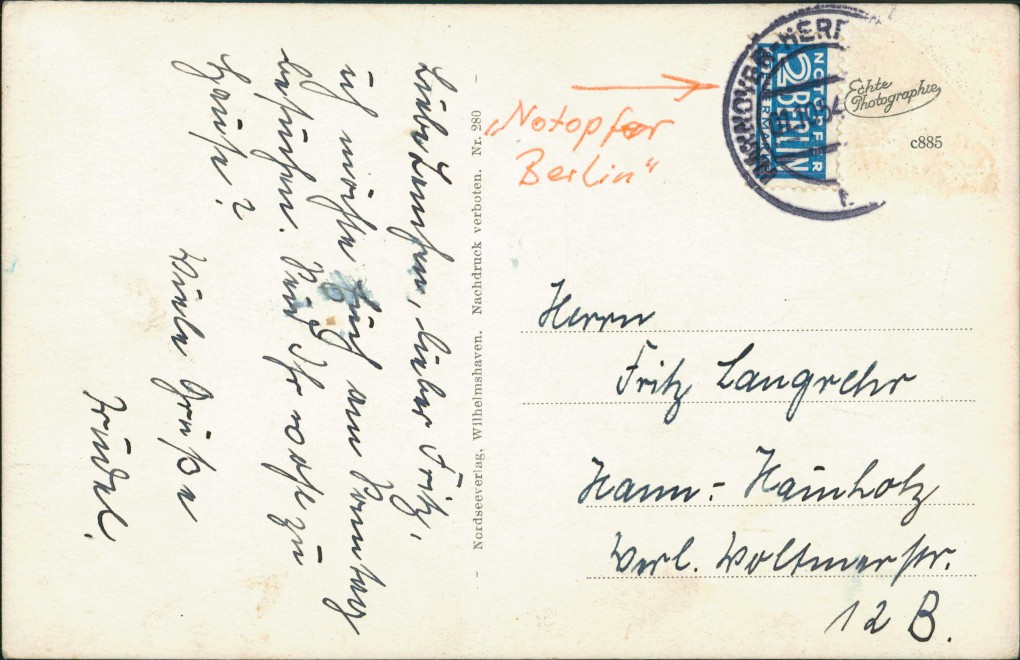 Liebe Lenchen, lieber Fritz,
ich möchte Euch am Sonntag
besuchen. Seid Ihr wohl zu
Hause?
Viele Grüße
Trudel.
Nordseeverlag, Wilhelmshaven. Nachdruck verboten. Nr. 280
„Notopfer
Berlin"
NOTOPFER
2 BERLIN
Echte
Photographie
c885
Herrn
Fritz Langrehr
Hann.-Hainholz
Verl. Voltmerstr.
12 B.